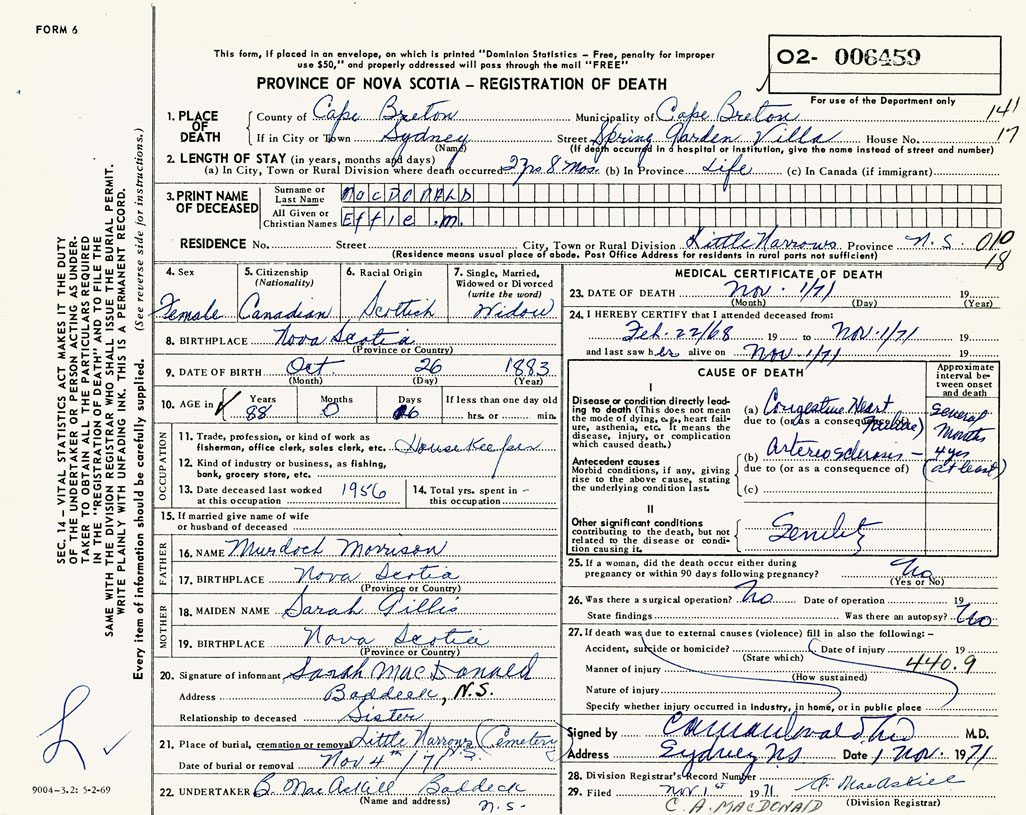 FORM 6
This form, if placed in an envelope, on which is printed "Dominion Statistics – Free, penalty for improper
use $50," and properly addressed will pass through the mail "FREE"
O2- 006459
For use of the Department only
PROVINCE OF NOVA SCOTIA – REGISTRATION OF DEATH
1. PLACE OF DEATH
County of Cape Breton Municipality of Cape Breton 141
If in City or Town Sydney Street Spring Garden Villa House No. 17
(Name) (If death occurred in a hospital or institution, give the name instead of street and number)
2. LENGTH OF STAY (in years, months and days)
(a) In City, Town or Rural Division where death occurred 2 yrs 8 mos. (b) In Province Life (c) In Canada (if immigrant)
3. PRINT NAME OF DECEASED
Surname or Last Name MacDONALD
All Given or Christian Names Effie .m.
RESIDENCE No. Street City, Town or Rural Division Little Narrows Province N.S. 010
(Residence means usual place of abode. Post Office Address for residents in rural parts not sufficient) 18
4. Sex Female
5. Citizenship (Nationality) Canadian
6. Racial Origin Scottish
7. Single, Married, Widowed or Divorced (write the word) Widow
8. BIRTHPLACE Nova Scotia
(Province or Country)
9. DATE OF BIRTH Oct 26 1883
(Month) (Day) (Year)
10. AGE in Years 88 Months 0 Days 06 If less than one day old
hrs. or min.
OCCUPATION
11. Trade, profession, or kind of work as
fisherman, office clerk, sales clerk, etc. HouseKeeper
12. Kind of industry or business, as fishing,
bank, grocery store, etc.
13. Date deceased last worked at this occupation 1956
14. Total yrs. spent in this occupation –
15. If married give name of wife
or husband of deceased
FATHER
16. NAME Murdoch Morrison
17. BIRTHPLACE Nova Scotia
(Province or Country)
MOTHER
18. MAIDEN NAME Sarah Gillis
19. BIRTHPLACE Nova Scotia
(Province or Country)
20. Signature of informant Sarah MacDonald
Address Baddeck, N.S.
Relationship to deceased Sister
21. Place of burial, cremation or removal Little Narrows (Cemetery) N.S.
Date of burial or removal Nov 4th/71
22. UNDERTAKER B. MacAskill Baddeck
(Name and address) N.S.
MEDICAL CERTIFICATE OF DEATH
23. DATE OF DEATH Nov. 1/71 19
(Month) (Day) (Year)
24. I HEREBY CERTIFY that I attended deceased from:
Feb. 22/68 19 to Nov. 1/71
and last saw her alive on Nov 1/71 19
CAUSE OF DEATH
Approximate interval between onset and death
I
Disease or condition directly leading to death (This does not mean the mode of dying, e.g., heart failure, asthenia, etc. It means the disease, injury, or complication which caused death.)
(a) Congestive Heart Failure several months
due to (or as a consequence of)
Antecedent causes
Morbid conditions, if any, giving rise to the above cause, stating the underlying condition last.
(b) Arteriosclerosis – 4 yrs (at least)
due to (or as a consequence of)
(c)
II
Other significant conditions
contributing to the death, but not related to the disease or condition causing it.
Senility
25. If a woman, did the death occur either during
pregnancy or within 90 days following pregnancy? No
(Yes or No)
26. Was there a surgical operation? No Date of operation 19
State findings Was there an autopsy? No
27. If death was due to external causes (violence) fill in also the following: –
Accident, suicide or homicide? Date of injury 19
(State which)
Manner of injury 440.9
(How sustained)
Nature of injury
Specify whether injury occurred in industry, in home, or in public place
Signed by M.D.
Address Sydney NS Date 1 Nov. 1971
28. Division Registrar's Record Number
29. Filed Nov 1st 1971 A. MacAskill
C. A. MACDONALD (Division Registrar)
SEC. 14 – VITAL STATISTICS ACT MAKES IT THE DUTY
OF THE UNDERTAKER OR PERSON ACTING AS UNDER-
TAKER TO OBTAIN ALL THE PARTICULARS REQUIRED
IN THE "REGISTRATION OF DEATH" AND TO FILE THE
SAME WITH THE DIVISION REGISTRAR WHO SHALL ISSUE THE BURIAL PERMIT.
WRITE PLAINLY WITH UNFADING INK. THIS IS A PERMANENT RECORD.
Every item of information should be carefully supplied. (See reverse side for instructions.)
9004-3.2: 5-2-69